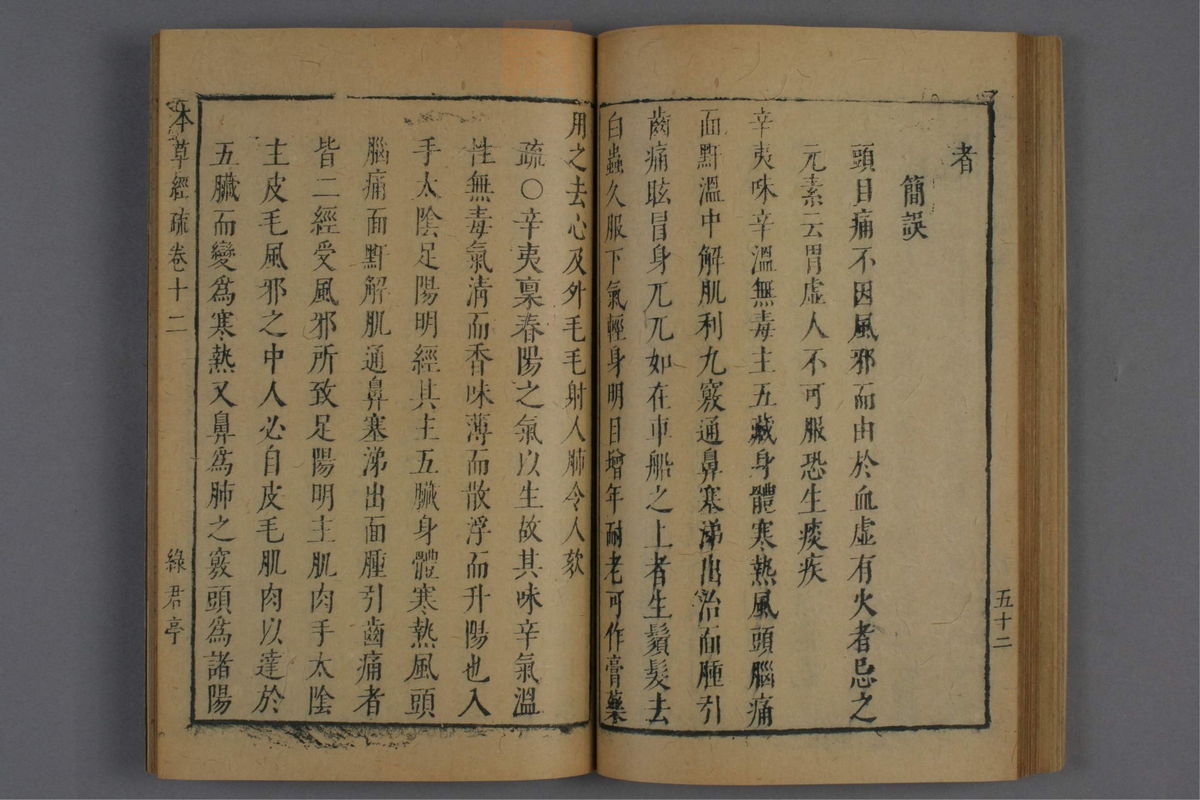 者
簡誤
頭目痛不因風邪而由於血虛有火者忌之
元素云胃虛人不可服恐生痰疾
辛夷味辛溫無毒主五藏身體寒熱風頭腦痛
面䵟溫中解肌利九竅通鼻塞涕出治面腫引
齒痛眩冒身兀兀如在車船之上者生鬚髮去
白蟲久服下氣輕身明目增年耐老可作膏藥
五十二
用之去心及外毛毛射人肺令人欬
疏○辛夷稟春陽之氣以生故其味辛氣溫
性無毒氣清而香味薄而散浮而升陽也入
手太陰足陽明經其主五臟身體寒熱風頭
腦痛面䵟解肌通鼻塞涕出面腫引齒痛者
皆二經受風邪所致足陽明主肌肉手太陰
主皮毛風邪之中人必自皮毛肌肉以達於
五臟而變爲寒熱又鼻爲肺之竅頭爲諸陽
本草經疏卷十二
綠君亭